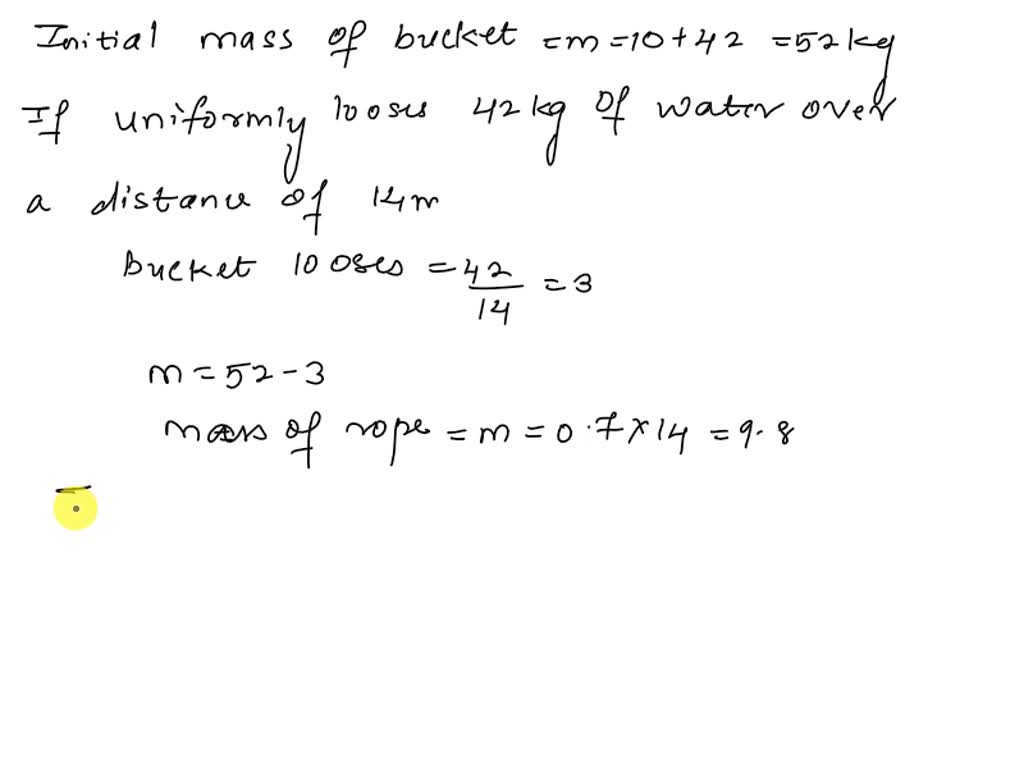 Initial mass of bucket = m = 10 + 42 = 52 kg
If uniformly looses 42 kg of water over
a distance of 14m
Bucket looses = 42/14 = 3
m = 52 - 3
mass of rope = m = 0.7 × 14 = 9.8